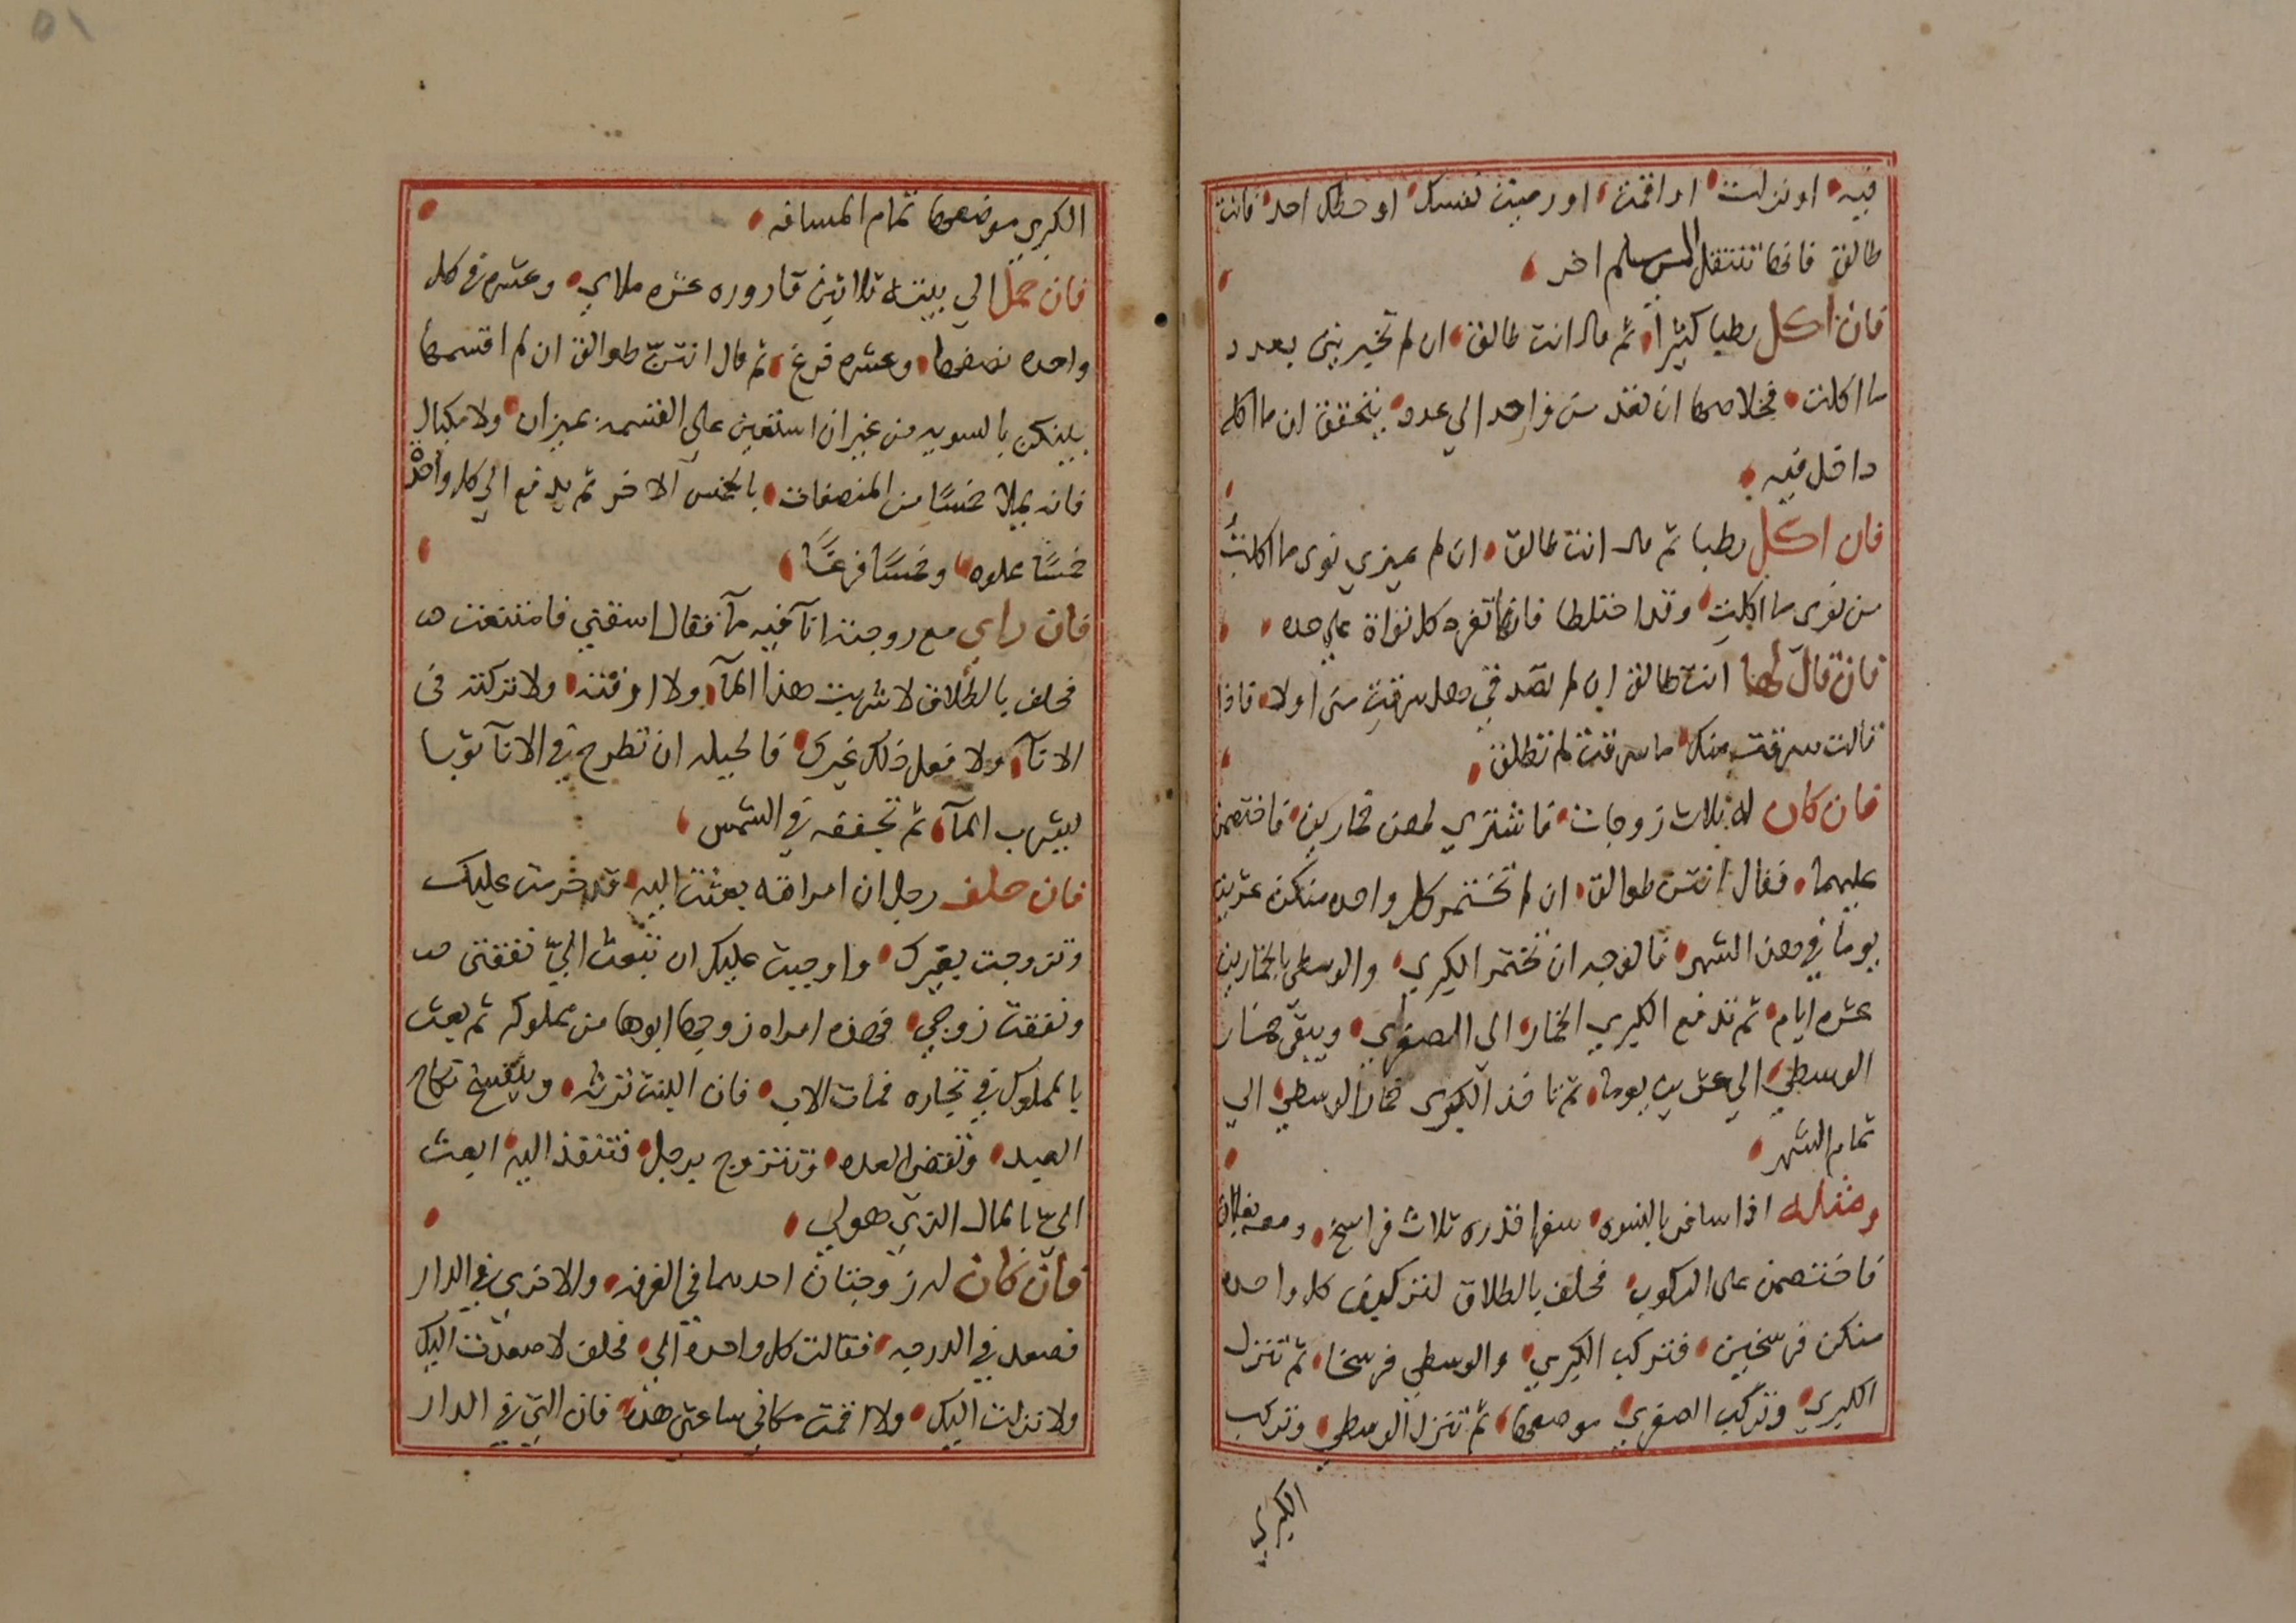 فيه او نزلت او اقمت او رميت نفسك او حطك احد فانت
طالق فانها تنتقل الى سلم اخر
فان اكل رطبا كثيرا ثم قال انت طالق ان لم تخبريني بعدد
ما اكلت فخلاصها ان تعد من واحد الي عدد يتحقق ان ما اكله
داخل فيه
فان اكل رطبا ثم قال انت طالق ان لم تميزي نوى ما اكلتُ
من نوى ما اكلتِ وقد اختلطا فانها تفرد كل نواة علي حده
فان قال لها انت طالق ان لم تصدقي هل سرقتِ مني اولا فاذا
قالت سرقت منك ما سرقت لم تطلق
فان كان له ثلاث زوجات فاشتري لهن خمارين فاختصمن
عليهما فقال انتن طوالق ان لم تختمر كل واحده منكن عشرين
يوما في هذا الشهر فالوجه ان تختمر الكبري والوسطي بالخمارين
عشره ايام ثم تدفع الكبري الخمار الي الصغري ويبقى خمار
الوسطي الي عشرين يوما ثم تاخذ الكبرى خمار الوسطي الي
تمام الشهر
ومثله اذا سافر بالنسوه سفرا قدره ثلاث فراسخ ومعه بغلان
فاختصمن على الركوب فحلف بالطلاق لتركبن كل واحده
منكن فرسخين فتركب الكبري والوسطي فرسخا ثم تنزل
الكبري وتركب الصغري موضعها ثم تنزل الوسطي وتركب
الكبري
الكبري موضعها تمام المسافه
فان حمل الي بيته ثلاثين قاروره عشره ملاي وعشره في كل
واحده نصفها وعشره فرغ ثم قال انتن طوالق ان لم اقسمها
بينكن بالسويه من غير ان استعين علي القسمه بميزان ولا مكيال
فانه يملا خمسًا من المنصفات بالخمس الاخر ثم يدفع الي كل واحدة
خمسًا مملوه وخمسًا فرغًا
فان راي مع زوجته اناء فيه ماء فقال اسقني فامتنعت
فحلف بالطلاق لا شربت هذا الماء ولا ارقته ولا تركته في
الاناء ولا فعل ذلك غيرك فالحيله ان تطرح في الاناء ثوبا
ليشرب الماء ثم تجففه في الشمس
فان حلف رجل ان امراته بعثت اليه قد حرمت عليك
وتزوجت بغيرك واوجبت عليك ان تبعث الي نفقتي
ونفقت زوجي فهذه امراه زوجها ابوها من مملوكه ثم بعث
بالمملوك في تجاره فمات الاب فان البنت ترثه وينفسخ نكاح
العبد وتقضي العده وتتزوج برجل فتنفذ اليه ابعث
الي بالمال الذي هو لي
فان كان له زوجتان احدهما في الغرفه والاخرى في الدار
فصعد في الدرجه فقالت كل واحده الي فحلف لا صعدت اليك
ولا نزلت اليك ولا اقمت مكاني ساعتي هذه فان التي في الدار